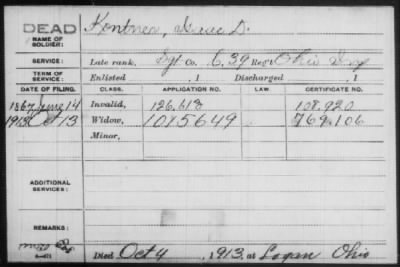 DEAD Kontner, Isaac D.
NAME OF SOLDIER:
SERVICE: Late rank, Sgt Co. C, 39 Reg't Ohio Inf
TERM OF SERVICE: Enlisted , 1 Discharged , 1
DATE OF FILING. CLASS. APPLICATION NO. LAW. CERTIFICATE NO.
1867 June 14 Invalid, 126,613 108,920
1913 Oct 13 Widow, 1015649 769,106
Minor,
ADDITIONAL SERVICES:
REMARKS:
Died Oct 4, 1913, at Logan Ohio